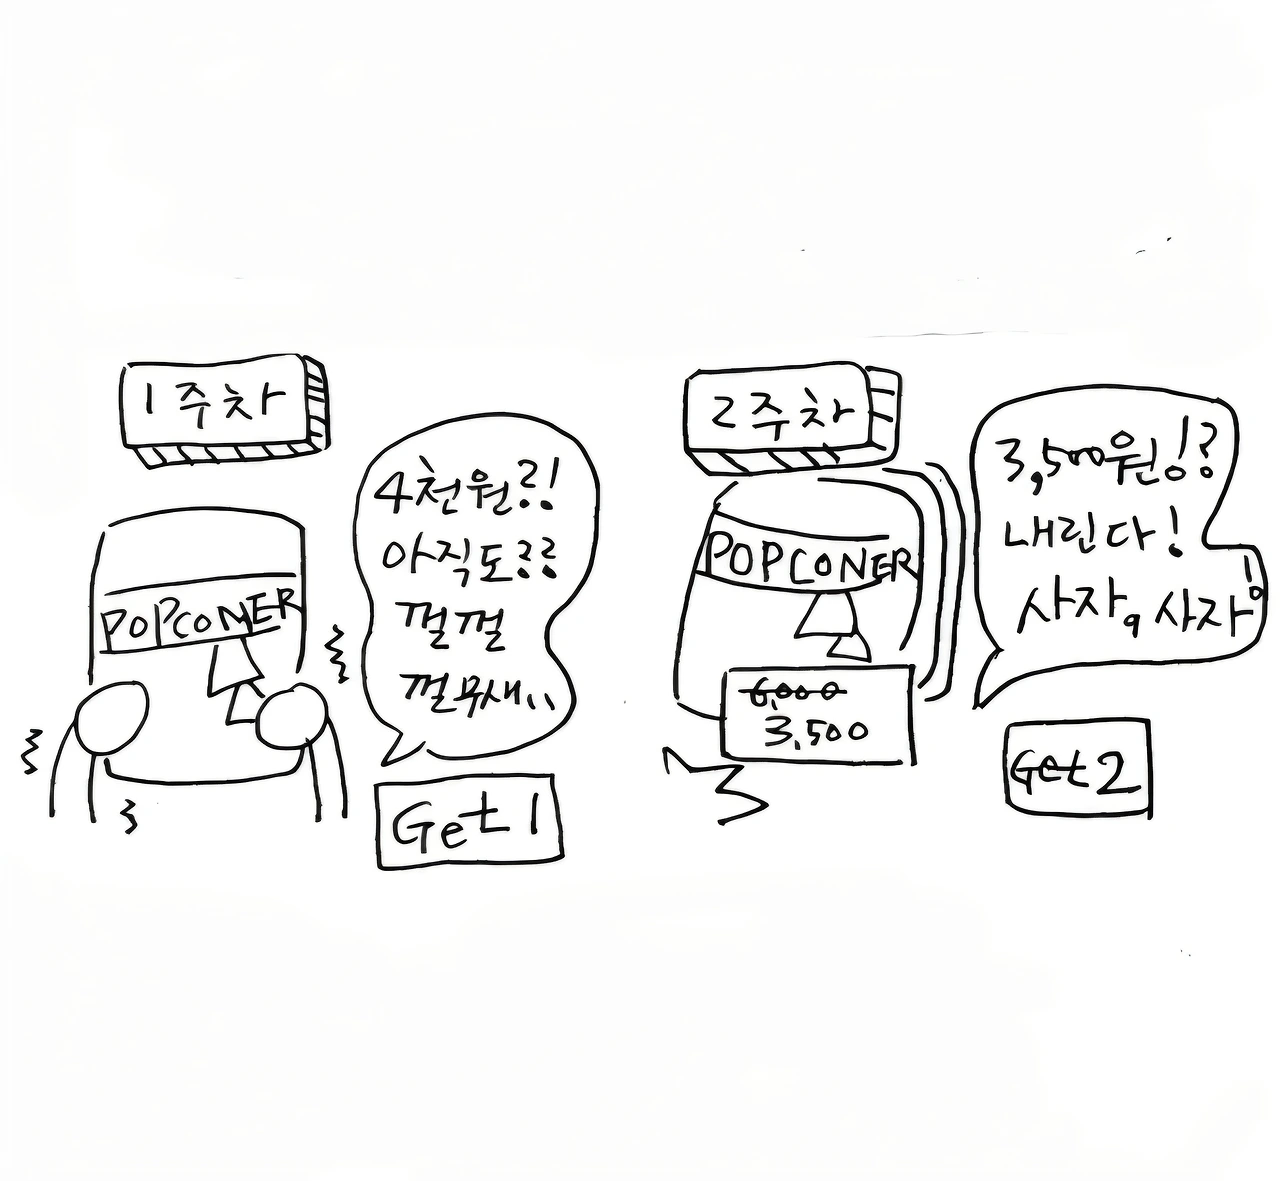 1주차
4천원?!
아직도??
껄껄
껄무새..
POPCONER
Get 1
2주차
3,500원!?
내린다!
사자, 사자!
POPCONER
6,000
3,500
Get 2